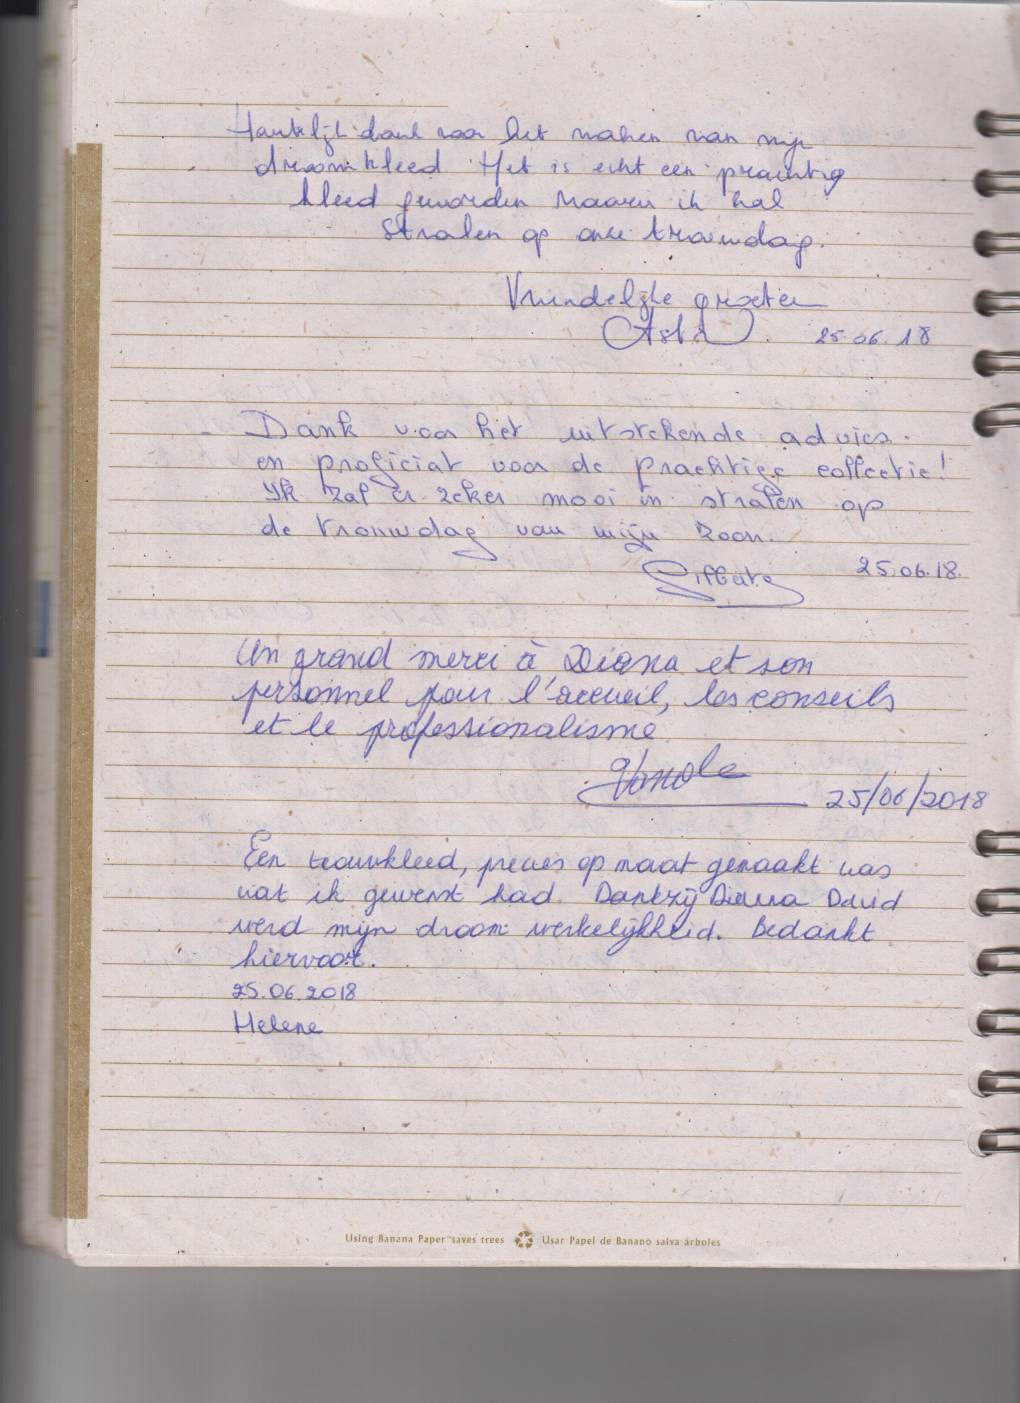 Hartelijk dank voor het maken van mijn
droomkleed. Het is echt een prachtig
kleed geworden waarin ik zal
stralen op onze trouwdag.
Vriendelijke groeten
25.06.18
Dank voor het uitstekende advies.
en proficiat voor de prachtige collectie!
Ik zal er zeker mooi in stralen op
de trouwdag van mijn zoon.
25.06.18.
Un grand merci à Diana et son
personnel pour l'accueil, les conseils
et le professionalisme
25/06/2018
Een trouwkleed, precies op maat gemaakt was
wat ik gewenst had. Dankzij Diana David
werd mijn droom werkelijkheid. Bedankt
hiervoor.
25.06.2018
Helene
Using Banana Paper™ saves trees Usar Papel de Banano salva árboles